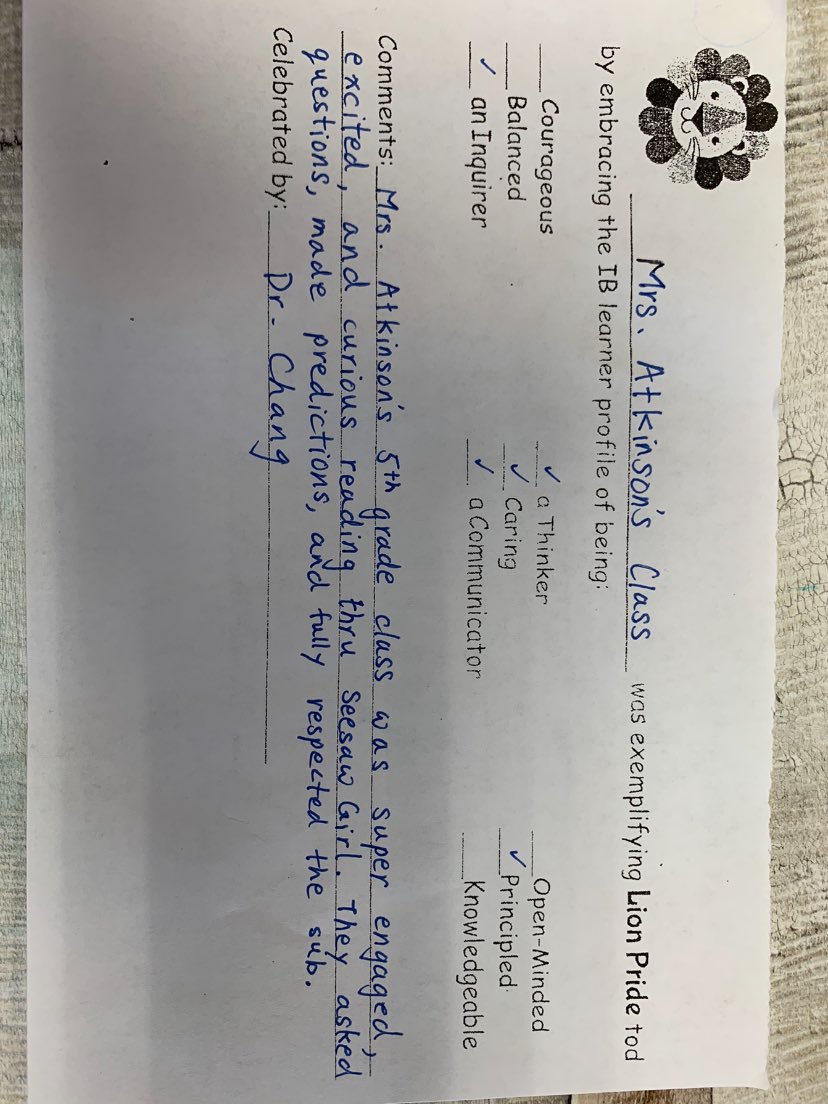 Mrs. Atkinson's Class was exemplifying Lion Pride tod
by embracing the IB learner profile of being:
Courageous ✓ a Thinker Open-Minded
Balanced ✓ Caring ✓ Principled
✓ an Inquirer ✓ a Communicator Knowledgeable
Comments: Mrs. Atkinson's 5th grade class was super engaged,
excited, and curious reading thru Seesaw Girl. They asked
questions, made predictions, and fully respected the sub.
Celebrated by: Dr. Chang